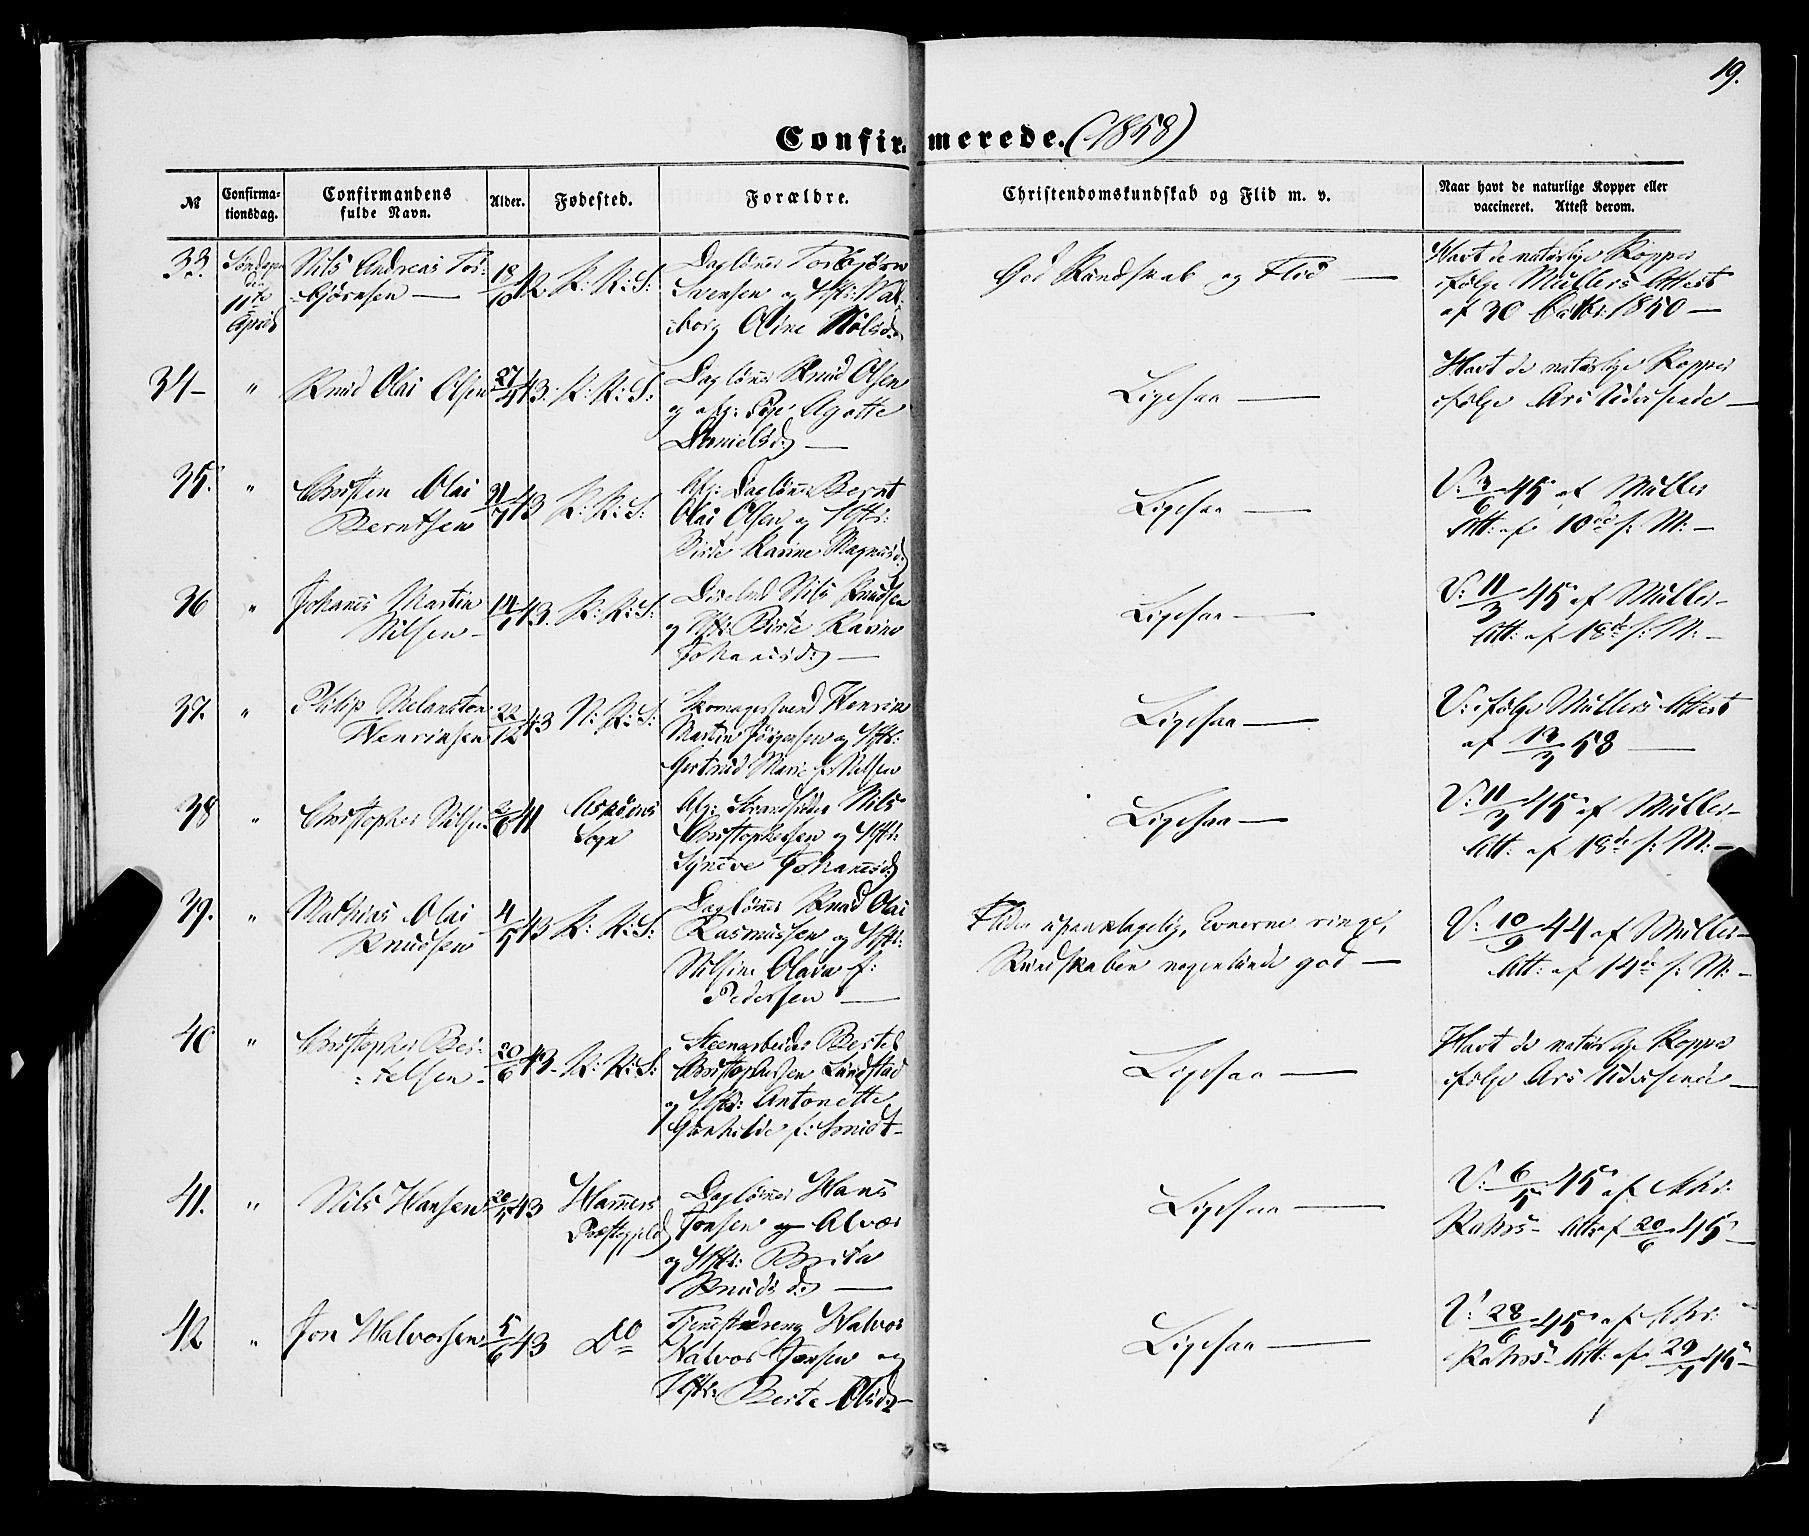 19.
Confirmerede. (1858)
№
Confirmationsdag.
Confirmandens fulde Navn.
Alder.
Fødested.
Forældre.
Christendomskundskab og Flid m. v.
Naar havt de naturlige Kopper eller vaccineret. Attest derom.
33.
Søndagen
den
11te
April
Nils Andreas Tor=
=bjørnsen —
18/10 42
K: K: S:
Daglønner Torbjørn
Svensen og Hstr: Val=
=borg Oline Nilsd:
God Kundskab og Flid —
Havt de naturlige Kopper
ifølge Müllers Attest
af 30 Octbr: 1850 —
34 —
"
Knud Olai Olsen
27/5 43.
K: K: S:
Daglønner Knud Olsen
og afg: Pige Agatte
Danielsd: —
Ligesaa —
Havt de naturlige Kopper
ifølge Ars Udseende —
35.
"
Christen Olai
Berntsen
31/7 43
K: K: S:
Afg: Daglønner Bernt
Olai Olsen og Hstr:
Birte Karine Magnusd:
Ligesaa —
V: 3/6 45, af Müller
Att: af 10de s: M: —
36
"
Johannes Martin
Nilsen —
14/7 43.
K: K: S:
Nils Knudsen
og Hstr: Birte Karine
Johannesd: —
Ligesaa —
V: 11/3 45 af Müller —
Att: af 18de s: M: —
37.
"
Philip Melankton
Henriksen
22/12 43
N: K: S:
Skomagersvend Henrik
Martin Jørgensen og Hstr:
Gertrud Marie f: Nilsen
Ligesaa —
V: ifølge Müllers Attest
af 12/3 58 —
38
"
Christopher Nilsen
2/6 41
Askøens
Sogn
Afg: Strandsidder Nils
Christophersen og Hstr:
Synneve Johannesd:
Ligesaa —
V: 11/3 45 af Müller —
Att: af 18de s: M: —
39.
"
Mathias Olai
Knudsen
4/5 43
K: K: S:
Daglønner Knud Olai
Rasmussen og Hstr:
Nilsine Olava f:
Pedersen —
Fliden upaaklagelig, Evnerne ringe,
Kundskaben nogenlunde god —
V: 10/9 44 af Müller —
Att: af 14de s: M: —
40
"
Christopher Ber=
=telsen —
20/6 43 —
K: K: S:
Steenarbeider Bertel
Christophersen Lundstad
og Hstr: Antonette
Gunhilde f: Smidt —
Ligesaa —
Havt de naturlige Kopper
ifølge Ars Udseende —
41.
"
Nils Hansen
20/5 43
Hammers
Præstegjeld
Daglønner Hans
Jonsen Alvær
og Hstr: Brita
Knudsd: —
Ligesaa —
V: 6/5 45 af Chr:
Rahrs — Att: af 20/6 45 —
42
"
Jon Halvorsen
5/6 43
Do
Tjenestedreng Halvor
Halvor Jonsen og
Hstr: Berte Olsd: —
Ligesaa —
V: 28/6 45 af Chr:
Rahrs Att: af 29/7 45 —